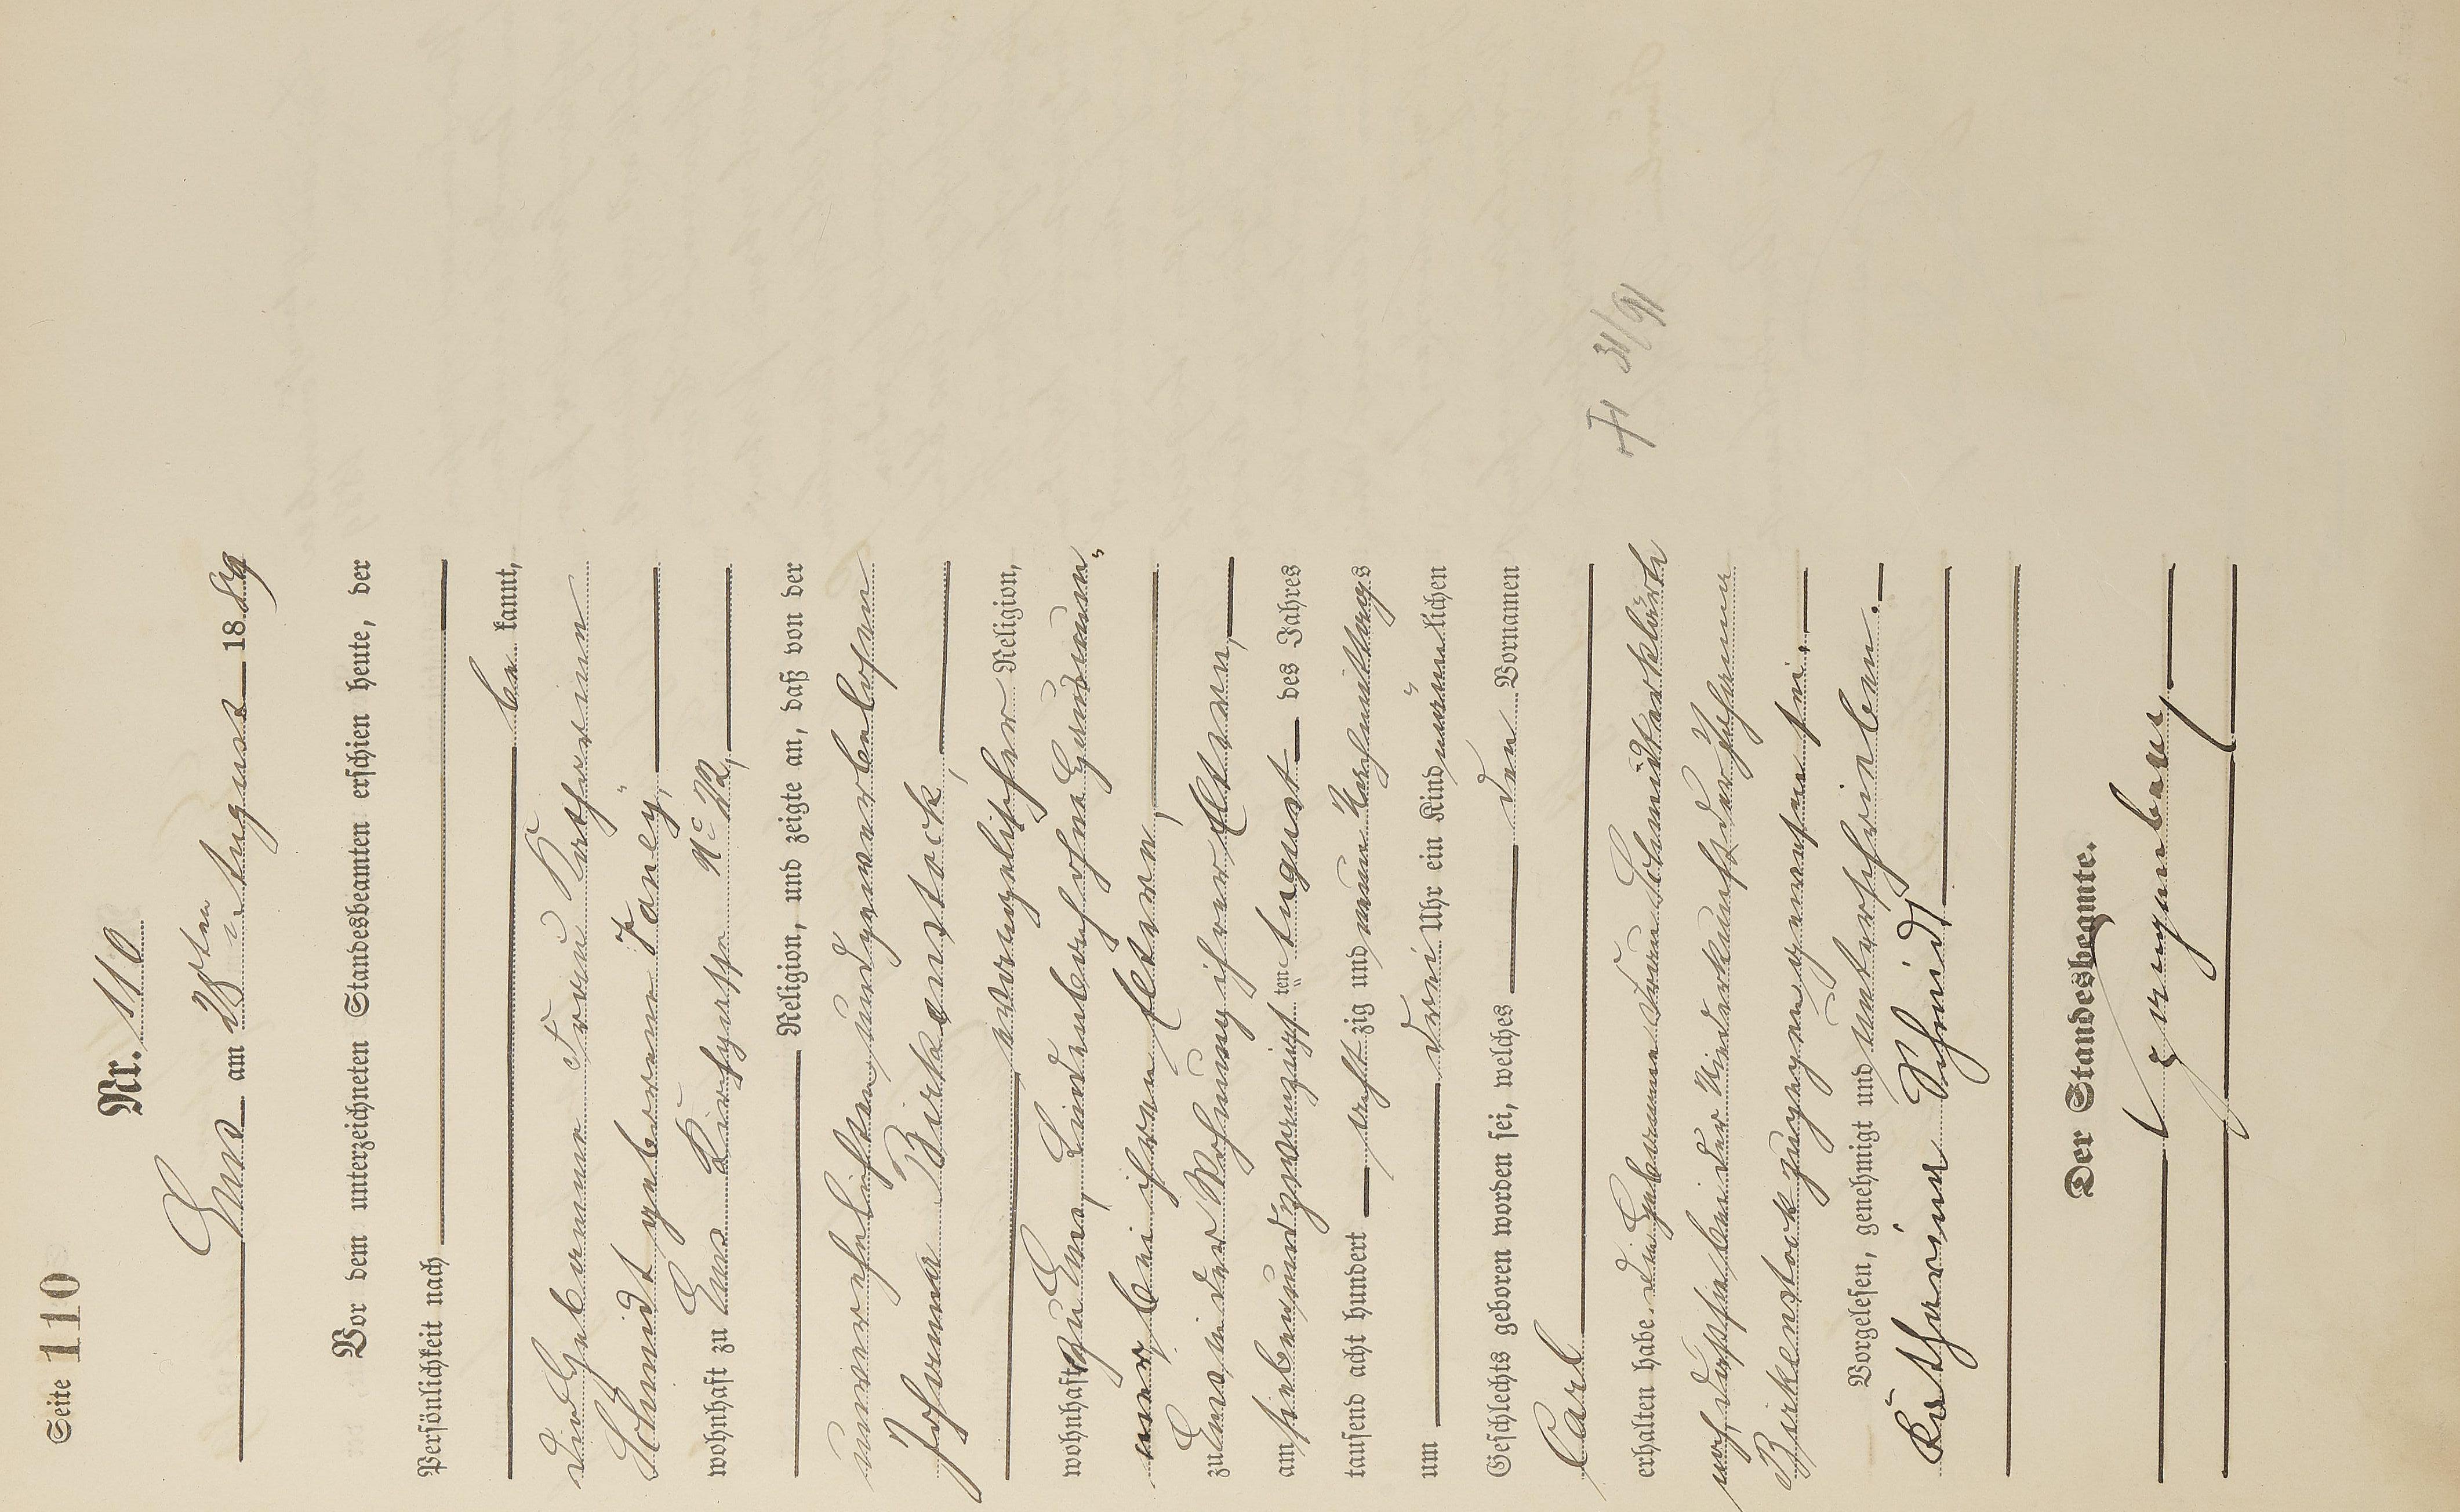 Seite 110
Nr. 110
Ems am 28ten August 1889
Vor dem unterzeichneten Standesbeamten erschien heute, der
Persönlichkeit nach
be kannt,
die Hebamme Frau Katharina
Schmidt geborene Janey,
wohnhaft zu Ems Kirchgasse No 22,
Religion, und zeigte an, daß von der
unverehelichten und gewerbelosen
Johanna Birkenstock,
evangelischer Religion,
wohnhaft zu Ems, Lindenbach ohne Hausnum„
mer, bei ihren Eltern,
zu Ems in der Wohnung ihrer Eltern,
am siebenundzwanzigsten August des Jahres
tausend acht hundert acht zig und neun Nachmittags
um drei Uhr ein Kind männlichen
Geschlechts geboren worden sei, welches den Vornamen
Carl
erhalten habe. Die Hebamme Frau Schmidt erklärte
noch daß sie bei der Niederkunft der Johanna
Birkenstock zugegen gewesen sei.
Vorgelesen, genehmigt und unterschrieben.
Katharina Schmidt
Der Standesbeamte.
† 31/91